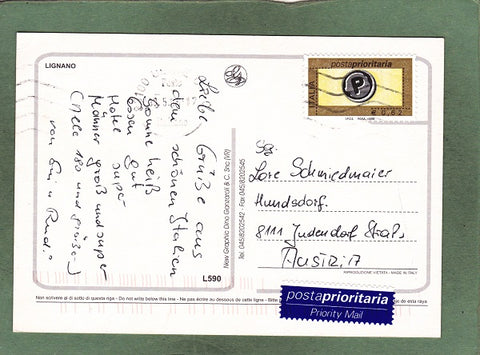 LIGNANO
Liebe Grüße aus
dem schönen Italien
Sonne heiß
Essen gut
Hotel super
Männer groß und super
(Alle 180 und größer)
von Em u Rud."
New Graphic Dino Gianzaroli & C. Snc (VR)
Tel. 045/8202542 - Fax 045/8202545
L590
postaprioritaria
ITALIA
P
€ 0,62
Lore Schmiedmaier
Hundsdorf.
8111 Judendorf Straß,
AUSTRIA
RIPRODUZIONE VIETATA - MADE IN ITALY
Non scrivere al di sotto di questa riga - Do not write below this line - Ne pas écrire au dessous de cette ligne - Bitte
de esta raya
postaprioritaria
Priority Mail